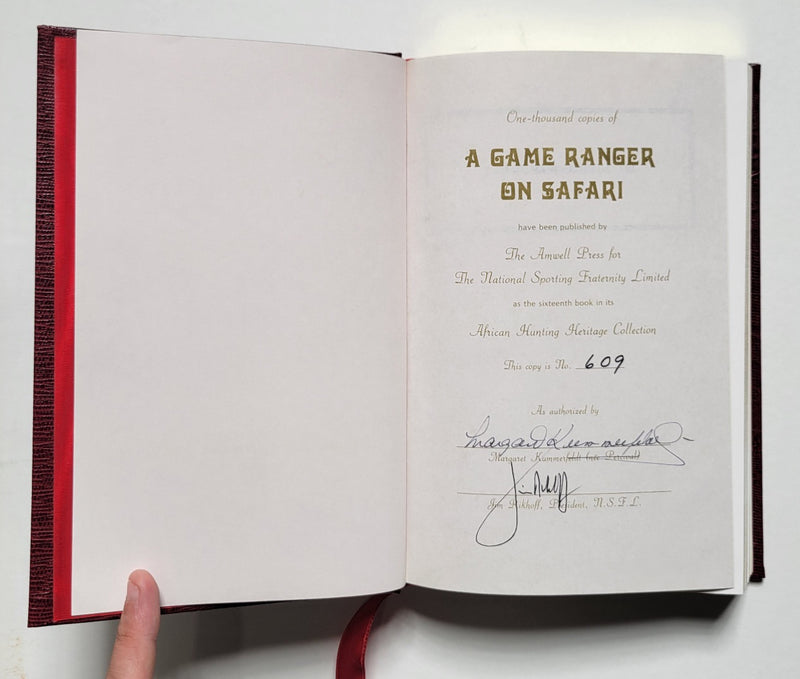 One-thousand copies of
A GAME RANGER
ON SAFARI
have been published by
The Amwell Press for
The National Sporting Fraternity Limited
as the sixteenth book in its
African Hunting Heritage Collection
This copy is No. 609
As authorized by
Margaret Kummerfeldt
Margaret Kummerfeldt (née Percival)
Jim Rikhoff
Jim Rikhoff, President, N.S.F.L.